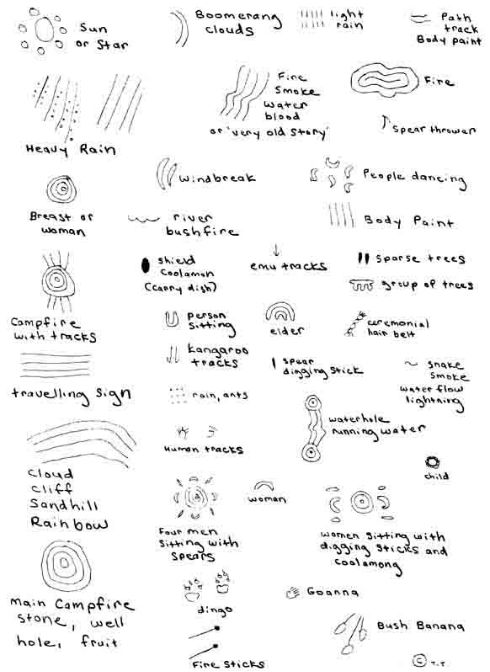 Sun
or Star
Boomerang
clouds
light
rain
Path
track
Body paint
Heavy Rain
Fire
Smoke
Water
blood
or 'very old story'
Fire
Spear thrower
Windbreak
People dancing
Breast or
woman
river
bushfire
Body Paint
shield
Coolamon
(carry dish)
emu tracks
sparse trees
group of trees
Campfire
with tracks
person
sitting
elder
ceremonial
hair belt
kangaroo
tracks
spear
digging stick
snake
smoke
water flow
lightning
travelling sign
rain, ants
waterhole
running water
Human tracks
child
Cloud
Cliff
Sandhill
Rainbow
woman
Four men
sitting with
spears
women sitting with
digging sticks and
coolamong
Main Campfire
stone, well
hole, fruit
dingo
Goanna
Fire sticks
Bush Banana
© T.T.